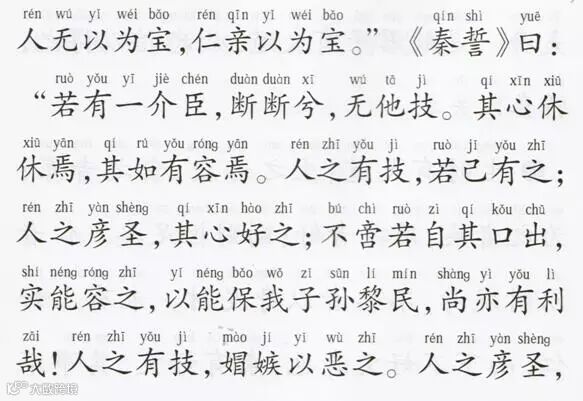 rén wú yǐ wéi bǎo rén qīn yǐ wéi bǎo qín shì yuē
人无以为宝，仁亲以为宝。”《秦誓》曰：
ruò yǒu yī jiè chén duàn duàn xī wú tā jì qí xīn xiū
“若有一介臣，断断兮，无他技。其心休
xiū yān qí rú yǒu róng yān rén zhī yǒu jì ruò jǐ yǒu zhī
休焉，其如有容焉。人之有技，若己有之；
rén zhī yàn shèng qí xīn hào zhī bú chì ruò zì qí kǒu chū
人之彦圣，其心好之；不啻若自其口出，
shí néng róng zhī yǐ néng bǎo wǒ zǐ sūn lí mín shàng yì yǒu lì
实能容之，以能保我子孙黎民，尚亦有利
zāi rén zhī yǒu jì mào jí yǐ wù zhī rén zhī yàn shèng
哉！人之有技，媢嫉以恶之。人之彦圣，